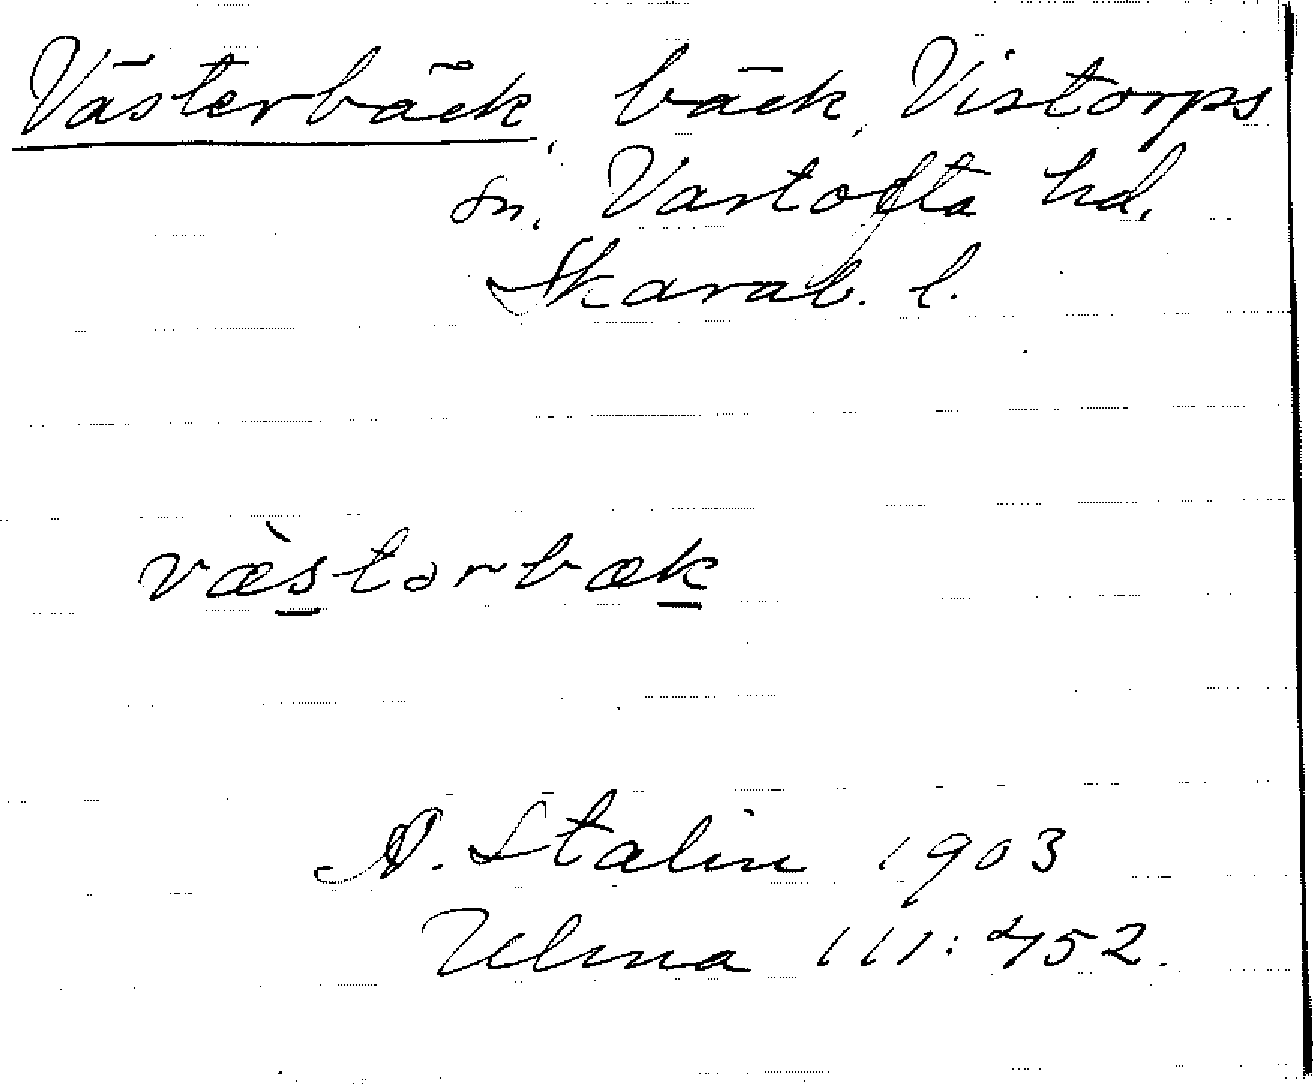 Västerbäck, bäck, Vistorps
sn. Vartofta hd.
Skarab. l.
væ̀stərbæk
A. Stalin 1903
Ulma 111:452.